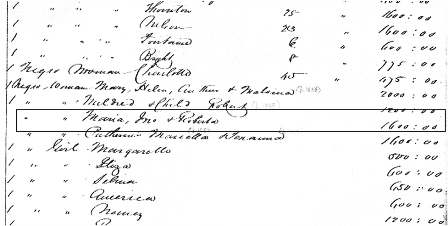 1 " " " Thornton 75 " 1600:00
1 " " " Nelson 23 " 1600:00
1 " " " Fontaine 6 " 600:00
1 " " " 8 " 775:00
1 Negro Woman Charlotte 45 " 475:00
1 Negro Woman Mary, Helen, & Malvina 2000:00
1 " " Mildred & Child Robert 1200:00
" " Maria, Jno & Roberta 1600:00
" " Catherine Marietta & 1600:00
1 " Girl Margarette 800:00
1 " " Eliza 600:00
1 " " Selina 650:00
1 " " America 600:00
1 " " Nancy 1200:00